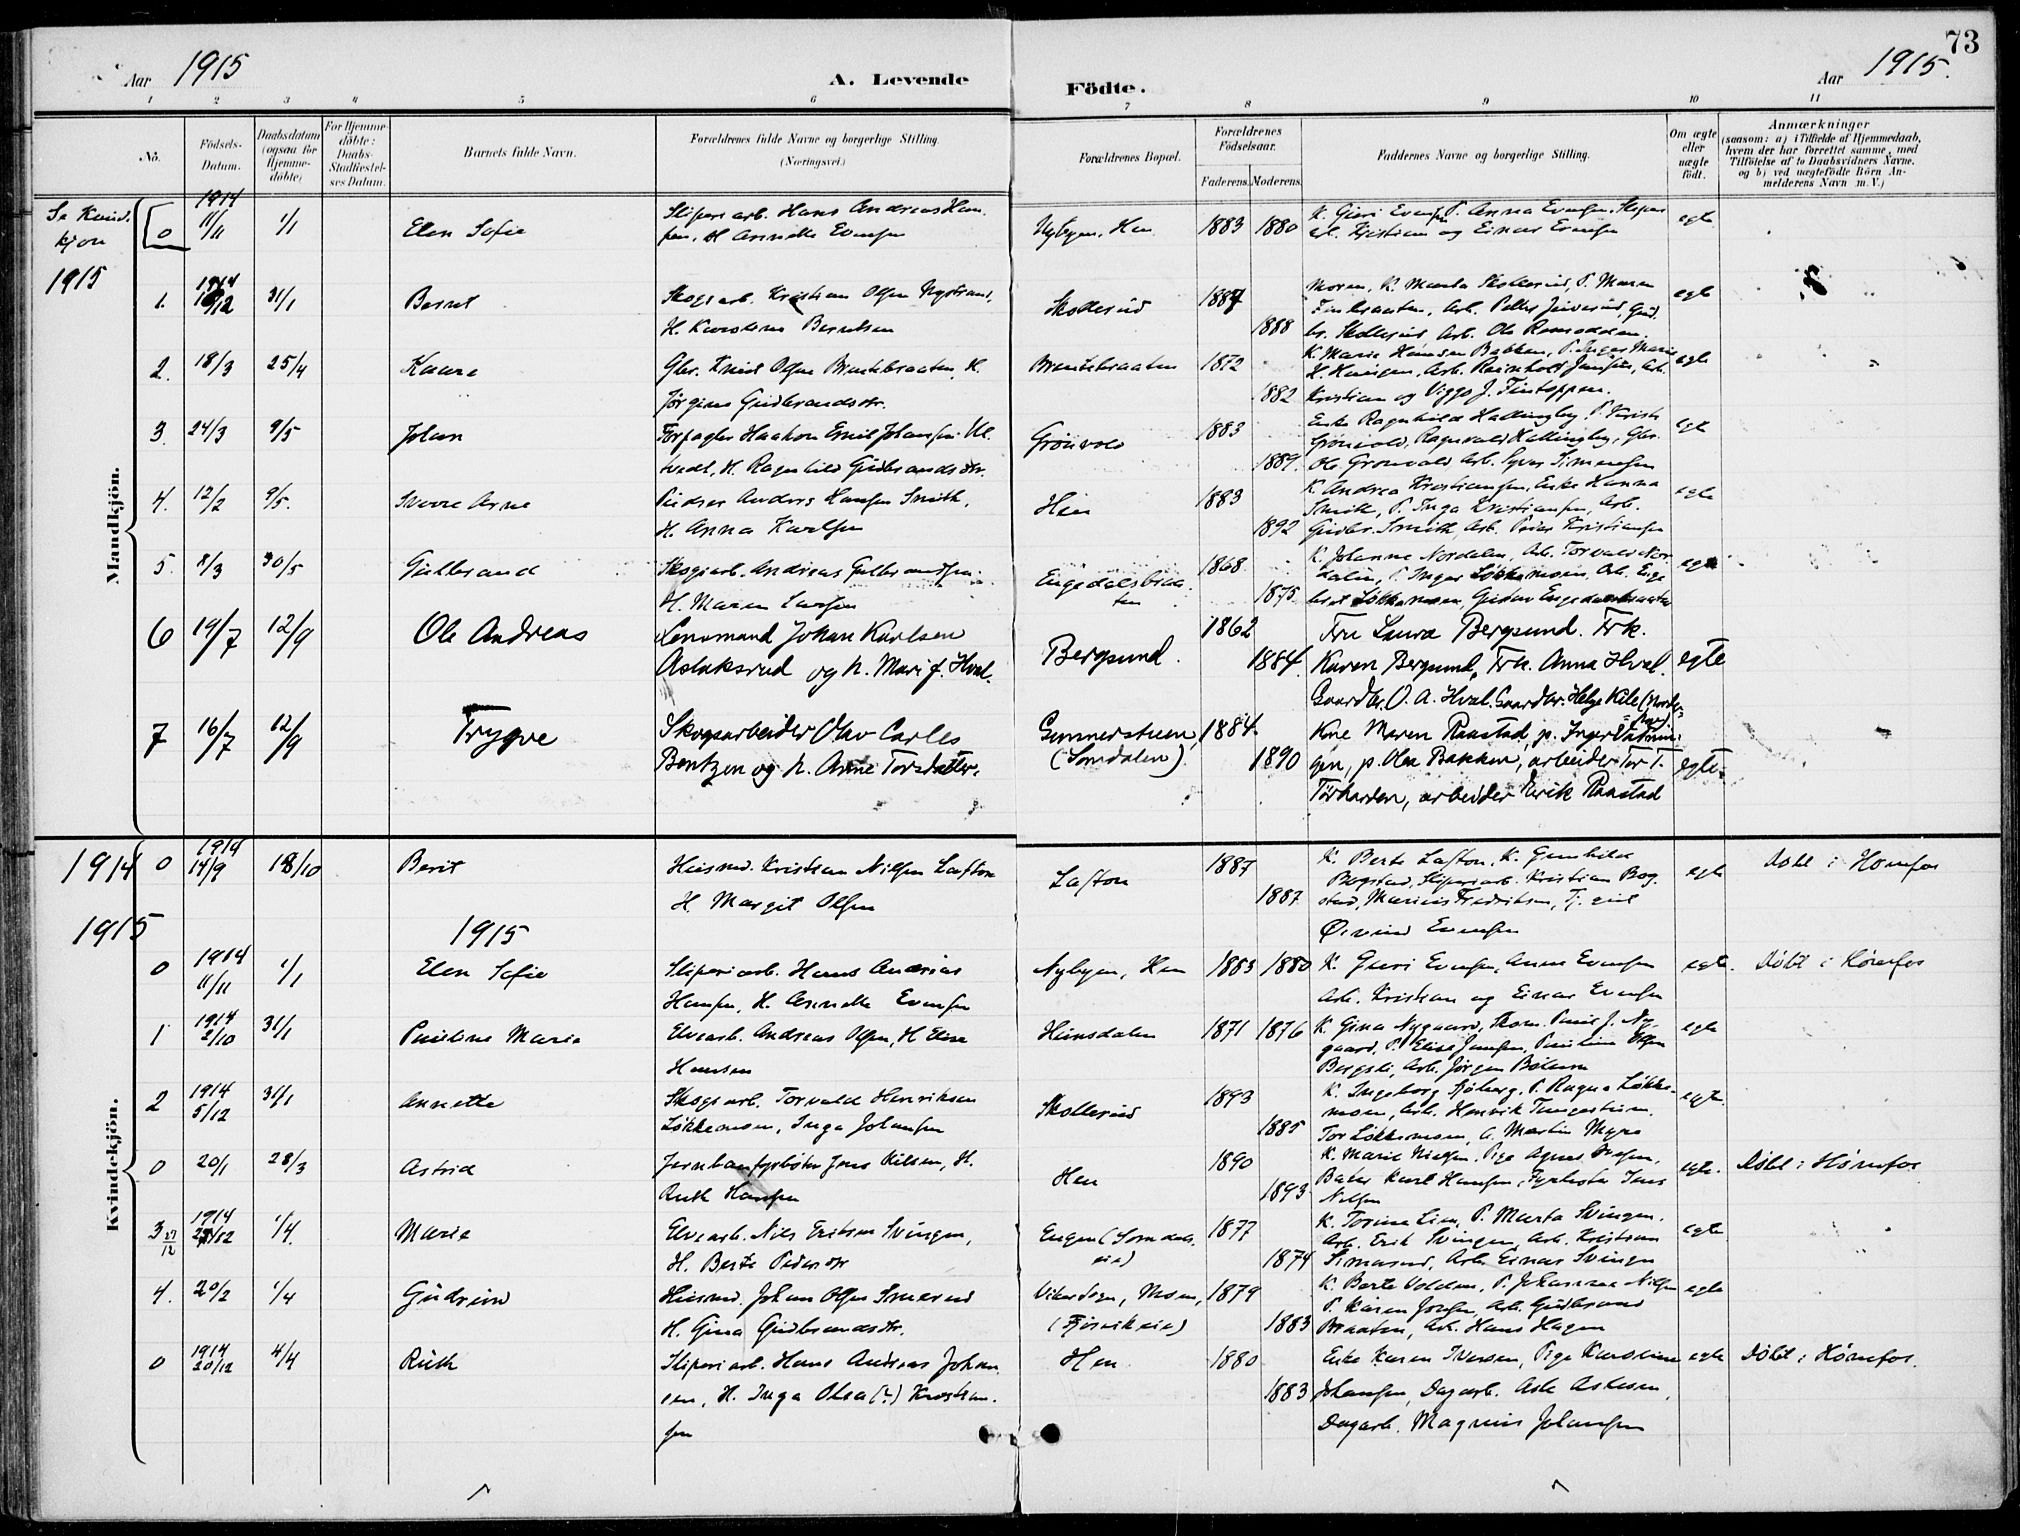 73
Aar 1915
A. Levende
Födte.
Aar 1915.
1 2 3 4 5 6 7 8 9 10 11
No.
Födsels-Datum.
Daabsdatum (ogsaa for Hjemme-döbte)
For Hjemme-döbte: Daabs-Stadfæstel-ses Datum.
Barnets fulde Navn.
Forældrenes fulde Navne og borgerlige Stilling. (Næringsvei.)
Forældrenes Bopæl.
Forældrenes Födselsaar.
Faderens. Moderens.
Faddernes Navne og borgerlige Stilling.
Om ægte eller uægte födt.
Anmærkninger
(saasom: a) i Tilfælde af Hjemmedaab, hvem der har forrettet samme, med Tilföielse af to Daabsvidners Navne, og b) ved uægtefödte Börn An-melderens Navn m. V.)
Mandkjön.
Se Kvind.
kjön
0 1914 11/11 1/1 Elen Sofie
Sliperiarb. Hans Andreas Han-
sen, H. Annette Evensen
Nybyen, Hen 1883 1880
K. Guri Evensen, P. Anna Evensen,
Kristian og Einar Evensen
egte
1915
1. 1914 31/1 Bernt
Skogsarb. Kristian Olsen
H. Karoline Berntsen
Skollerud 1887 1888
Moren, K. Marta Skollerud, P. Maren
egte
2. 18/3 25/4 Kaare
Gbr. Knut Olsen Brentebraaten, H.
Jørgine Gudbrandsdtr.
Brentebraaten 1872 1882
K. Marie Hansen Bakken, P. Inger Marie
Kristian og Viggo J. Fintoppen.
egte
3. 24/3 9/5 Johan
Forpagter Haakon Emil Johansen Ul-
tvedt, H. Ragnhild Gudbrandsdtr.
Grönvold 1883 1889.
Enke Ragnhild Hallingby, P.
Grönvold, Ragnvald Hallingby, Gbr.
Ole Grönvold, Arb. Syver Simensen
egte
4. 12/2 9/5. Sverre Arne
Pudser Anders Hansen Smith,
H. Anna Karlsen
Hen 1883 1892
K. Andrea Kristiansen, Enke Hanna
Smith, P. Inga Kristiansen, Arb.
Gudbr. Smith, Arb. Peder Kristiansen
egte
5. 8/3 30/5 Gulbrand
Skogsarb. Andreas Gulbrandsen
H. Maren Larsen
Engedalsbraa-
ten
1868 1875
K. Johanne Nordalen, Arb. Torvald Nor-
dalen, P. Inger Løkkemoen, Arb. Enge-
bret Løkkemoen, Gustav Engedalsbraaten
egte
6 19/7 12/9 Ole Andreas
Lensmand Johan Karlsen
Aslaksrud og h. Mari f. Hval.
Bergsund. 1862 1884.
Fru Laura Bergsund. Frk.
Karen Bergsund, Frk. Anna Hval.
Gaardbr. O. A. Hval. Gaardbr. Helge Kile
egte
7 16/7 12/9 Trygve
Skogsarbeider Olav Carles
Bentzen og h. Anne Torsdatter.
Gunnerstuen,
(Somdalen).
1884. 1890
Kone Maren Raastad, p. Inger
gen, p. Olea Bakken, arbeider Tor T.
arbeider Erik Raastad
egte.
Kvindekjön.
1914 0 1914 14/9 18/10 Berit
Husmd. Kristian Nilsen Lafton
H. Margit Olsen
Lafton 1887 1887
K. Berte Lafton, K. Gunhild
Bogstad, Sliperiarb. Kristian Bog-
stad, Marius Fredriksen,
Øivind Evensen
egte Döbt i Hönefos
1915 1915
0 1914 11/11 1/1 Elen Sofie
Sliperiarb. Hans Andreas
Hansen, H. Annette Evensen
Nybyen, Hen 1883 1880
K. Guri Evensen, Anna Evensen
Arb. Kristian og Einar Evensen
egte. Döbt i Hönefos
1 1914 2/10 31/1 Pauline Marie
Elvearb. Andreas Olsen, H. Elise
Hansen
Hunsdalen 1871 1876
K. Gina Nygaard, Thom. Paul J. Ny-
gaard, P. Elise Jensen, Pauline Olsen
Bergsli, Arb. Jørgen
egte
2 1914 5/12 31/1 Annette
Skogsarb. Torvald Henriksen
Løkkemoen, Inga Johansen
Skollerud 1893 1885
K. Ingeborg Sjøberg, P. Ragna Løkke-
moen, Arb. Henrik
Tor Løkkemoen, A. Martin Myra
egte.
0 20/1 28/3 Astrid
Jernbanfyrbøter Jens Nilsen, H.
Ruth Hansen
Hen 1890 1893
K. Marie Nielsen, Pige Agnes
Karl Hansen, Fyrbøter Jens
Nilsen
egte. Döbt i Hönefos
3 27/12 1914 12 1/4. Marie
Elvearb. Nils Eriksen Svingen,
H. Berte Pedersdtr
Engen (Somdals-
eie)
1877 1874
K. Torine Lien, P. Marta Svingen,
Arb. Erik Svingen, Arb. Kristian
Arb. Einar Svingen
egte
4. 20/2 1/4 Gudrun
Husmd. Johan Olsen
H. Gina Gudbrandsdtr.
Viker Sogn, Moen,
1879 1883
K. Berte Volden, P. Johanna Nilsen
P. Karen Arb. Gudbrand
Braaten, Arb. Hans Hagen
egte
0 1914 20/12 4/4 Ruth
Sliperiarb. Hans Andreas Johan-
sen, H. Inga Olea (?) Kristian-
sen
Hen 1880 1883
Enke Karen Iversen, Pige Karoline
Johansen, Dagarb. Asle Aslesen,
Dagarb. Magnus Johansen
egte Döbt i Hönefos.